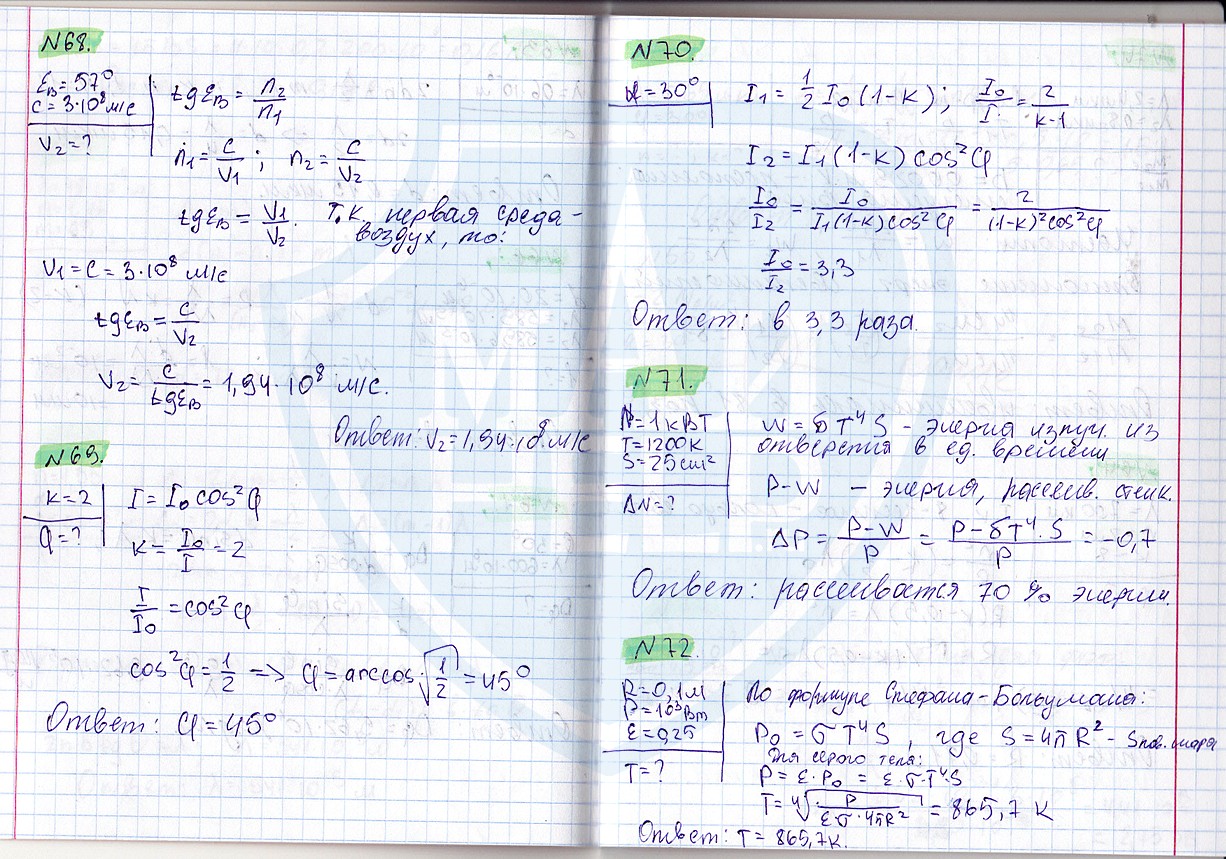 N68.
εB = 57°
c = 3·10⁸ м/с
V₂ = ?
tgεB = n₂/n₁
n₁ = c/V₁ ; n₂ = c/V₂
tgεB = V₁/V₂. Т.к. первая среда -
воздух, то:
V₁ = c = 3·10⁸ м/с
tgεB = c/V₂
V₂ = c/tgεB = 1,94·10⁸ м/с.
Ответ: V₂ = 1,94·10⁸ м/с
N69.
k = 2
φ = ?
I = I₀ cos²φ
k = I₀/I = 2
I/I₀ = cos²φ
cos²φ = 1/2 => φ = arccos √(1/2) = 45°
Ответ: φ = 45°
N70.
α = 30°
I₁ = 1/2 I₀ (1-k) ; I₀/I = 2/(k-1)
I₂ = I₁ (1-k) cos²φ
I₀/I₂ = I₀/(I₁(1-k)cos²φ) = 2/((1-k)²cos²φ)
I₀/I₂ = 3,3
Ответ: в 3,3 раза.
N71.
P = 1 кВт
T = 1200 К
S = 25 cm²
ΔN = ?
W = σT⁴S - энергия излуч. из
отверстия в ед. времени
P-W - энергия, рассеив. стенк.
ΔP = (P-W)/P = (P-σT⁴·S)/P = -0,7
Ответ: рассеивается 70 % энергии.
N72.
R = 0,1 м
P = 10³ Вт
ε = 0,25
T = ?
По формуле Стефана-Больцмана:
P₀ = σT⁴S , где S = 4πR² - Sпов. шара
Для серого тела:
P = ε·P₀ = ε·σ·T⁴S
T = ⁴√(P/(ε·σ·4πR²)) = 865,7 К
Ответ: T = 865,7 К.